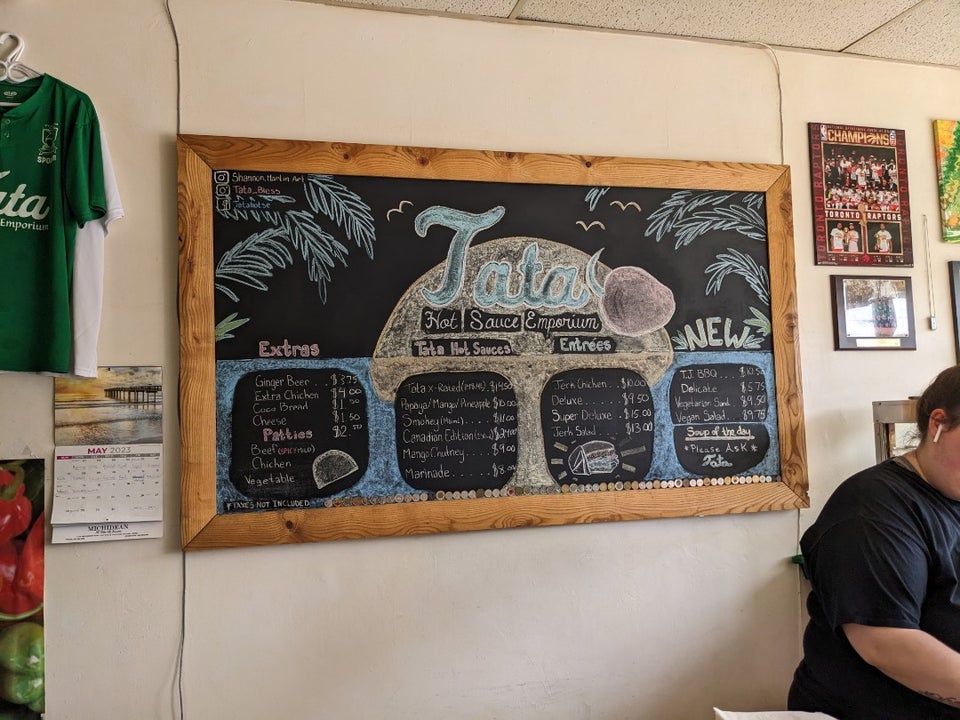 Shannon.Martin.Art
Tata_Bless
Tatahotse
Tata
Hot Sauce Emporium
Extras
Ginger Beer . . . $3.75
Extra Chicken $4.00
Coco Bread
Cheese $1.50
Patties $2.
Beef (SPICY/MILD)
Chicken
Vegetable
*TAXES NOT INCLUDED
Tata Hot Sauces
Tata x-Rated
Papaya/Mango/Pineapple
Smokey
Canadian Edition
Mango Chutney . . $9.00
Marinade . . . . $8.00
Entrées
Jerk Chicken . . $10.00
Deluxe . . . . . $9.50
Super Deluxe . $15.00
Jerk Salad . . . $13.00
NEW
T.J. BBQ . . . . $10.50
Delicate . . . . $5.75
Vegetarian Sand. $9.50
Vegan Salad . . $9.75
Soup of the day
*Please Ask*
Tata
Tata
Emporium
MAY 2023
MICHIDEAN
CHAMPIONS
TORONTO RAPTORS
TORONTO RAPTORS